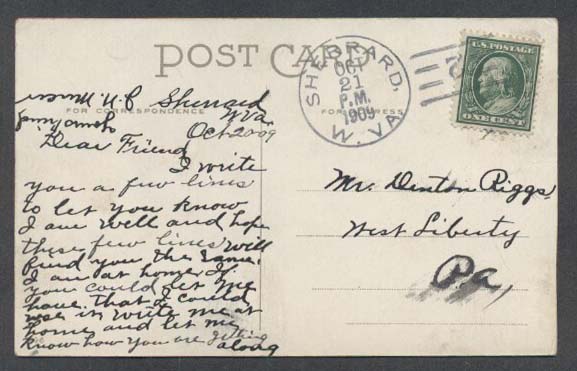 POST CARD
FOR CORRESPONDENCE
FOR ADDRESS
SHERRARD,
OCT
21
P.M.
1909
W. VA.
U.S. POSTAGE
ONE CENT
Sherrard
W Va.
Oct 20 09
Dear Friend
I write
you a few lines
to let you know
I am well and hope
these few lines will
find you the same.
I am at home. If
you could let me
have that I could
use in write me at
home and let me
know how you are getting
along
Mr. Denton Riggs
West Liberty
Pa,